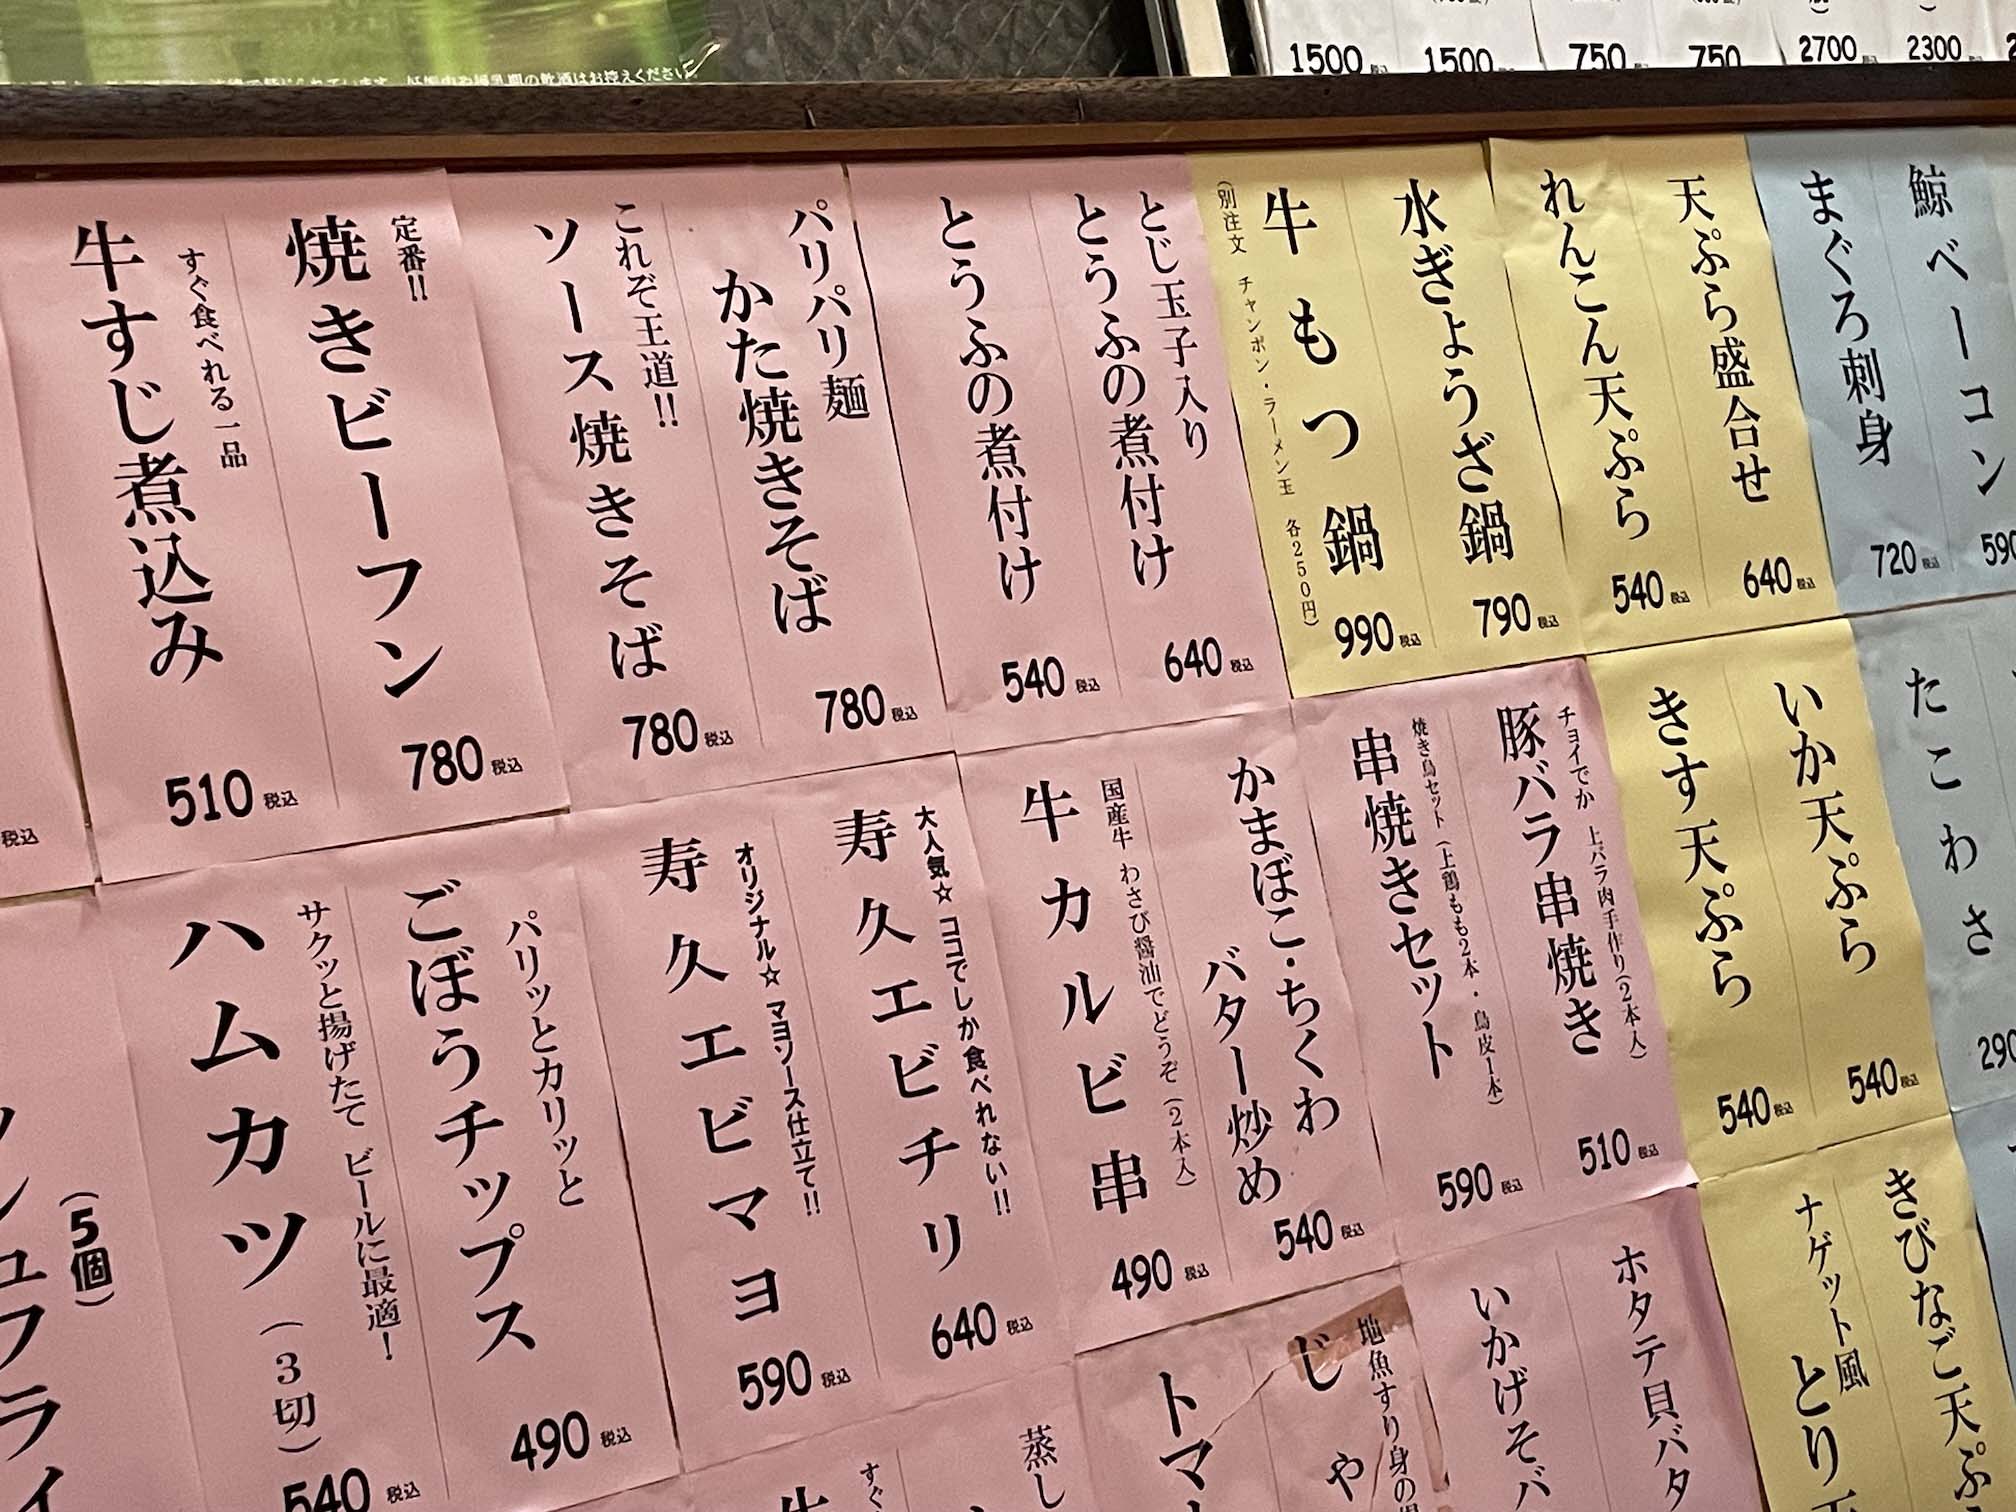 妊娠中や授乳期の飲酒はお控えください
1500 税込
1500 税込
750 税込
750 税込
2700 税込
2300 税込
鯨ベーコン
590
まぐろ刺身
720 税込
天ぷら盛合せ
640 税込
れんこん天ぷら
540 税込
水ぎょうざ鍋
790 税込
牛もつ鍋
990 税込
(別注文 チャンポン・ラーメン玉 各250円)
とじ玉子入り
とうふの煮付け
640 税込
とうふの煮付け
540 税込
パリパリ麺
かた焼きそば
780 税込
これぞ王道!!
ソース焼きそば
780 税込
定番!!
焼きビーフン
780 税込
すぐ食べれる一品
牛すじ煮込み
510 税込
税込
たこわさ
290
いか天ぷら
540 税込
きす天ぷら
540 税込
チョイでか 上バラ肉手作り(2本入)
豚バラ串焼き
510 税込
焼き鳥セット(上鶏もも2本・鳥皮1本)
串焼きセット
590 税込
かまぼこ・ちくわ
バター炒め
540 税込
国産牛 わさび醤油でどうぞ(2本入)
牛カルビ串
490 税込
大人気☆ ココでしか食べれない!!
寿久エビチリ
640 税込
オリジナル☆ マヨソース仕立て!!
寿久エビマヨ
590 税込
パリッとカリッと
ごぼうチップス
490 税込
サクッと揚げたて ビールに最適!
ハムカツ(3切)
540 税込
(5個)
ュフライ
きびなご天ぷ
ナゲット風
とり
ホタテ貝バタ
いかげそバ
地魚すり身の
じゃ
トマ
蒸し
すぐ
牛